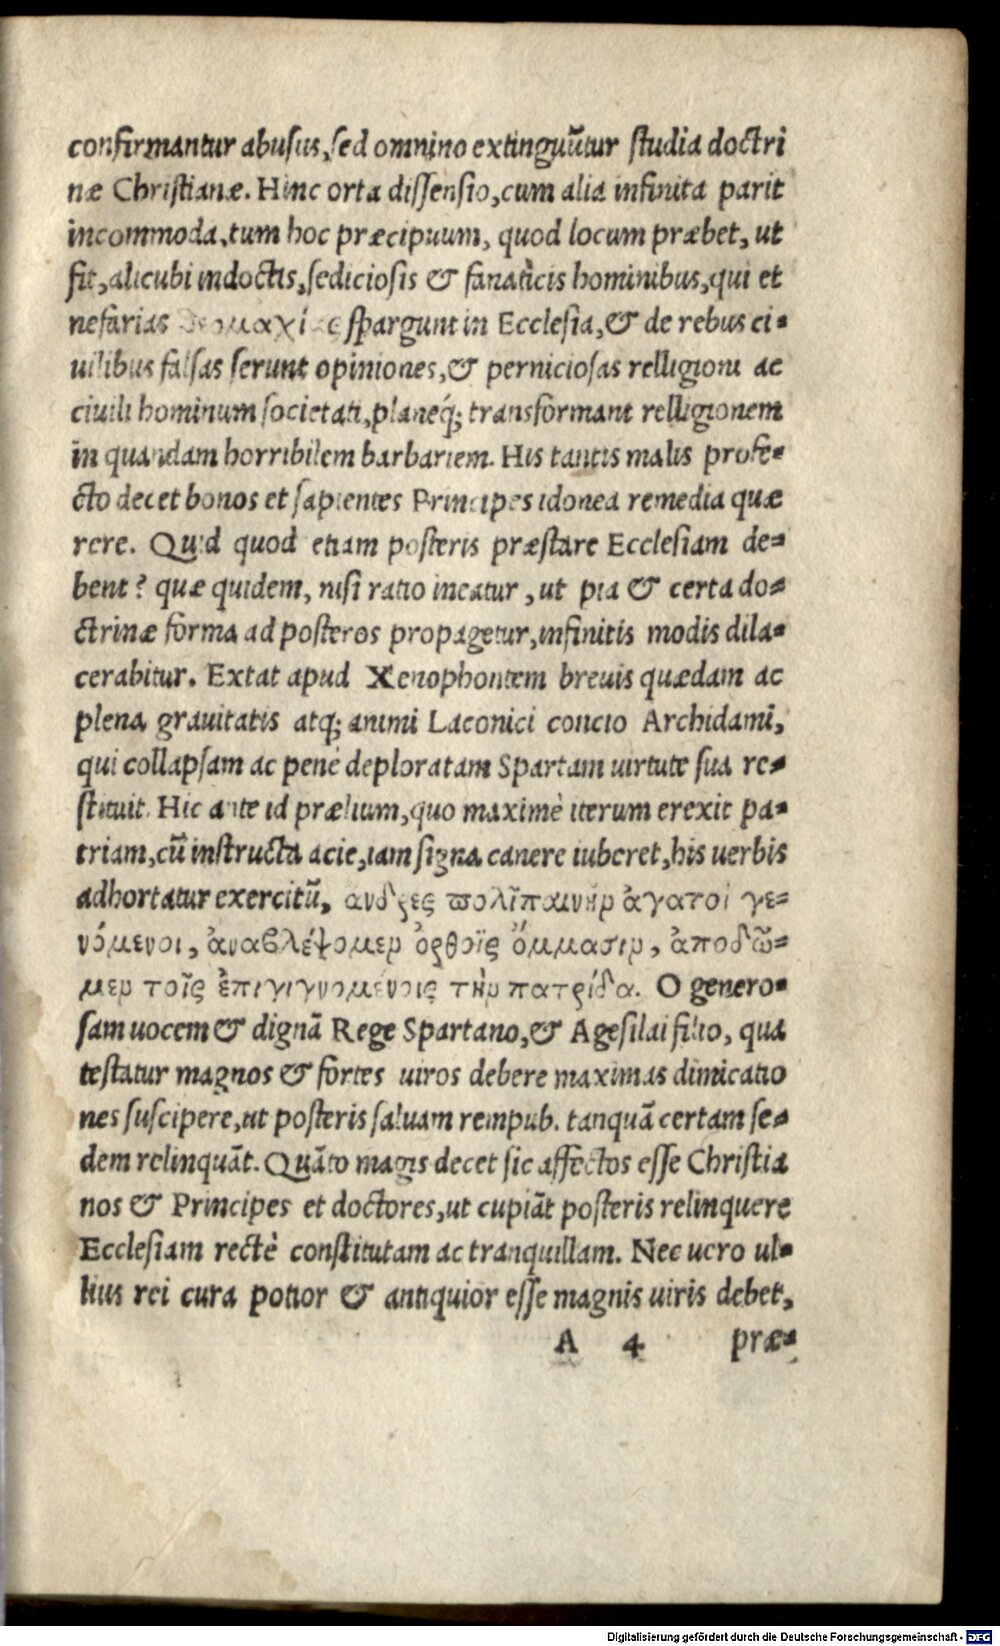 confirmantur abusus, sed omnino extinguũtur studia doctri
næ Christianæ. Hinc orta dissensio, cum alia infinita parit
incommoda, tum hoc præcipuum, quod locum præbet, ut
fit, alicubi indoctis, sediciosis & fanaticis hominibus, qui et
nefarias spargunt in Ecclesia, & de rebus ci-
uilibus falsas serunt opiniones, & perniciosas relligioni ac
ciuili hominum societati, planeq́; transformant relligionem
in quandam horribilem barbariem. His tantis malis profe-
cto decet bonos et sapientes Principes idonea remedia quæ
rere. Quid quod etiam posteris præstare Ecclesiam de-
bent? quæ quidem, nisi ratio ineatur, ut pia & certa do-
ctrinæ forma ad posteros propagetur, infinitis modis dila-
cerabitur. Extat apud Xenophontem breuis quædam ac
plena grauitatis atq; animi Laconici concio Archidami,
qui collapsam ac penè deploratam Spartam uirtute sua re-
stituit. Hic ante id prælium, quo maximè iterum erexit pa-
triam, cũ instructa acie, iam signa canere iuberet, his uerbis
adhortatur exercitũ, ανδρες πολῖται νῦν ἀγατοὶ γε-
νόμενοι, ἀναβλέψομεν ὀρθοῖς ὄμμασιν, ἀποδῶ-
μεν τοῖς ἐπιγιγνομένοις τὴν πατρίδα. O genero-
sam uocem & dignã Rege Spartano, & Agesilai filio, qua
testatur magnos & fortes uiros debere maximas dimicatio
nes suscipere, ut posteris saluam rempub. tanquã certam se-
dem relinquãt. Quãto magis decet sic affectos esse Christia
nos & Principes et doctores, ut cupiãt posteris relinquere
Ecclesiam rectè constitutam ac tranquillam. Nec uero ul-
lius rei cura potior & antiquior esse magnis uiris debet,
A 4 præ-
Digitalisierung gefördert durch die Deutsche Forschungsgemeinschaft - DFG